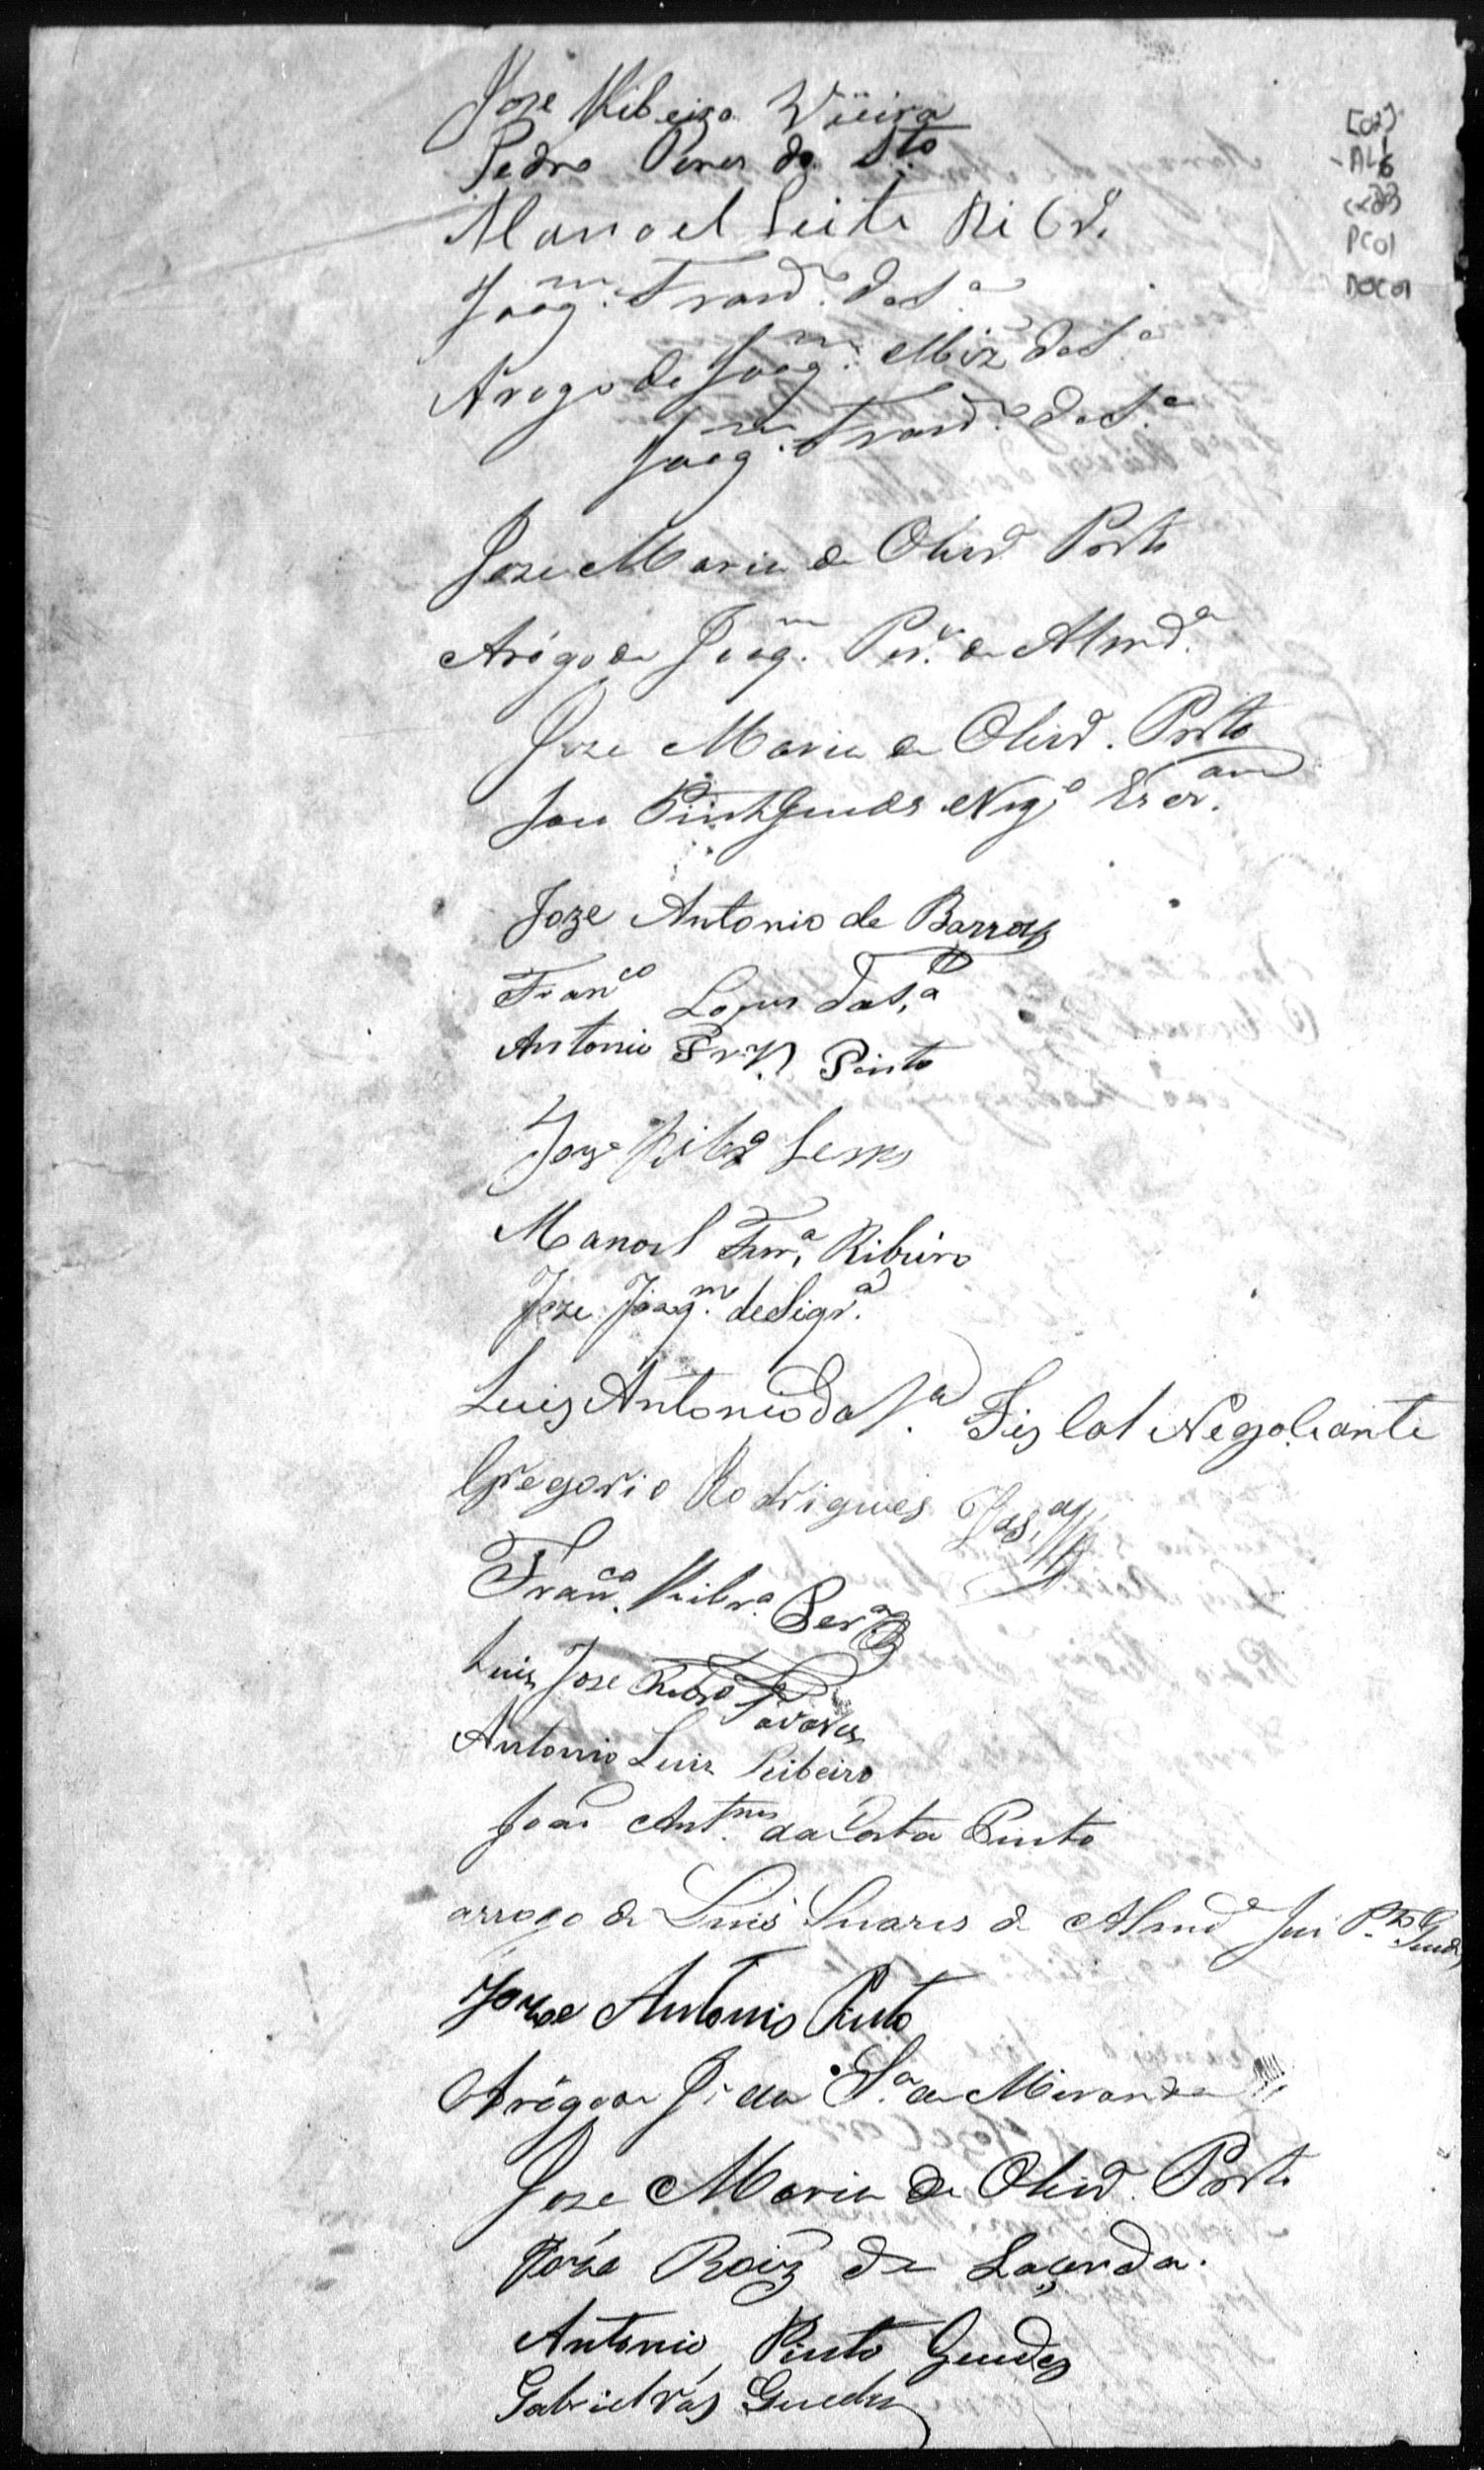 Joze Ribeiro Vieira
Pedro Peres do Sto
Manoel Leite Ribr.
Joaqm. Francº. da Sª.
Arogo de Joaqm. Miz da Sª.
Joaqm. Francº. da Sª.
Joze Maria de Olivrª Porto
Arôgo de Joaqm. Perª. de Almdª.
Joze Maria de Olivrª. Porto
Pinto Guedes Negº Escram
Joze Antonio de Barros
Franco Lopes da Sª
Antonio Pinto
Joze Ribrº Lemos
Manoel Ferrª Ribeiro
Joze Joaqm. de Siqrª.
Luis Antonio da Sª. Fiscal Negociante
Gregorio Rodrigues da Sª
Franco. Ribrº. Perª
Luiz Jose Ribrº Tavares
Antonio Luiz Ribeiro
João Antnes da Costa Pinto
arrogo de Luis Suares de Almdª Pto Gueds
Joze Antonio Pinto
Arôgo de J. da Sª. de Miranda
Joze Maria de Olivrª. Porto
Joze Roiz de Lacerda.
Antonio Pinto Guedes
Gabriel Vás Guedes
[02]
AL16
PC01
DOC01